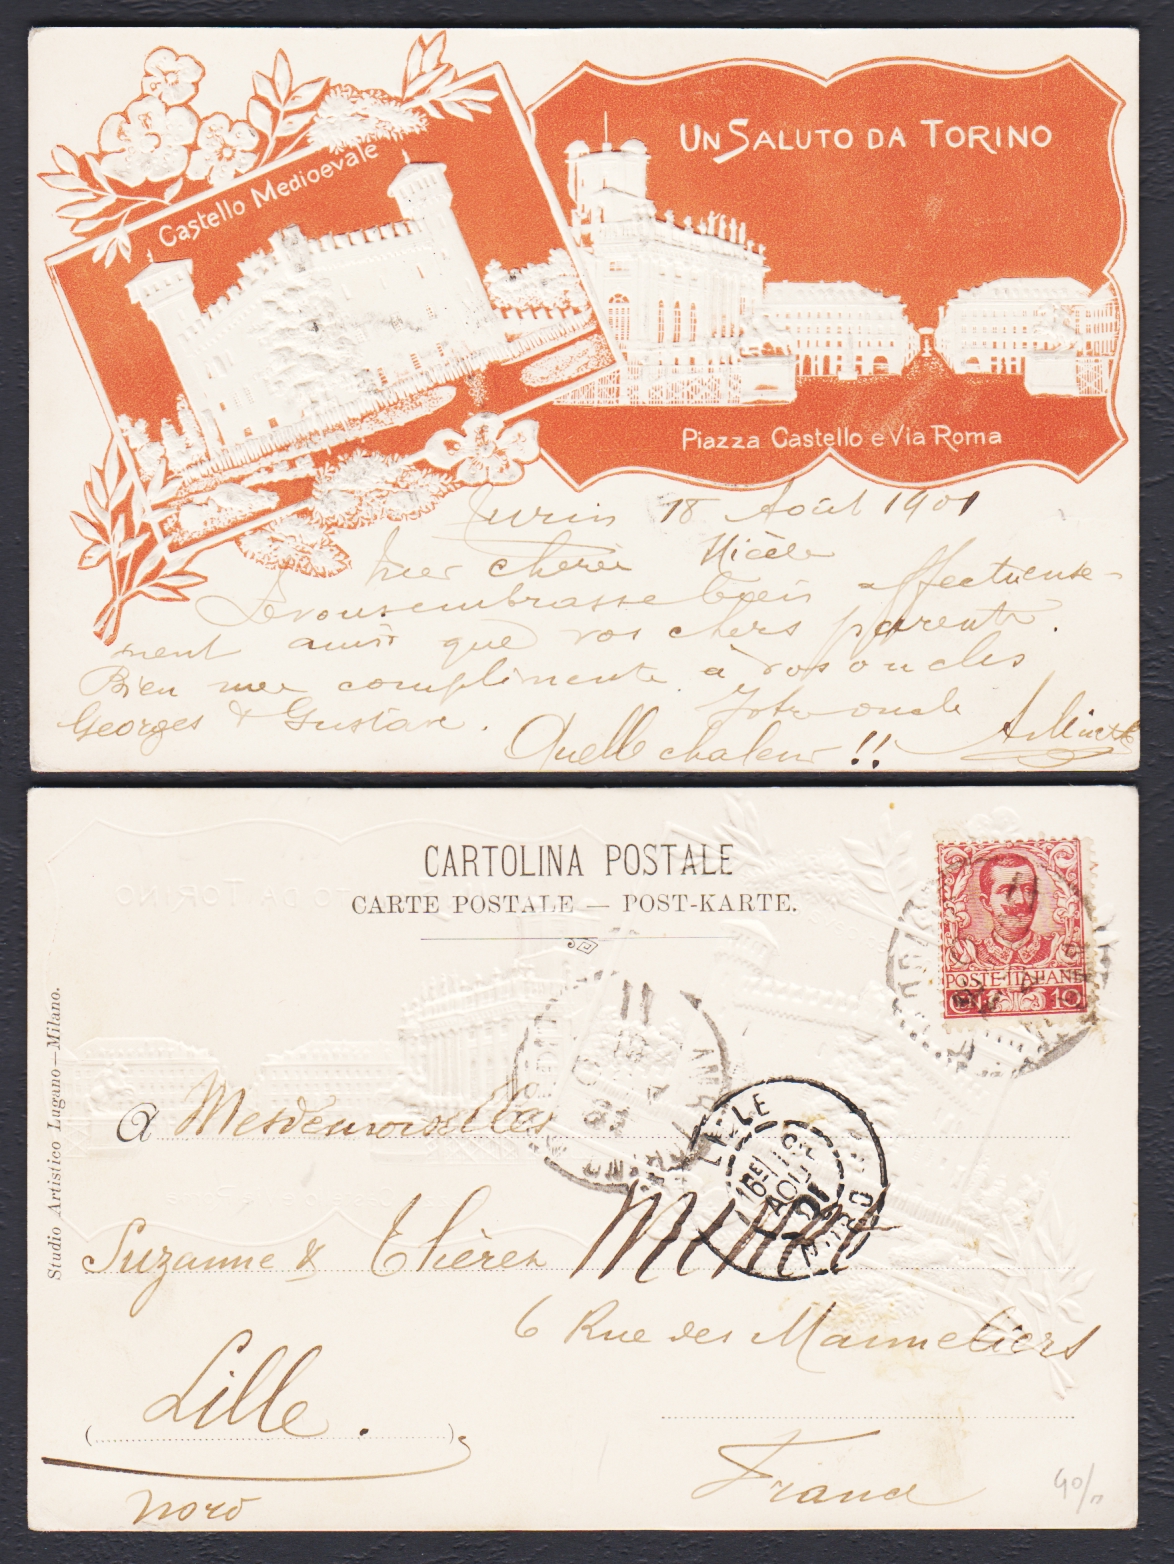 UN SALUTO DA TORINO
Castello Medioevale
Piazza Castello e Via Roma
Turin 18 Août 1901
mes chères Nièces
Je vous embrasse bien affectueuse-
ment ainsi que vos chers parents.
Bien mes compliments à vos oncles
Georges & Gustave. Votre oncle
Quelle chaleur !!
CARTOLINA POSTALE
CARTE POSTALE — POST-KARTE.
POSTE-ITALIANE
C. 10
Studio Artistico Lugano—Milano.
LILLE
NORD
A Mesdemoiselles
Suzanne & Thérèse Minet
6 Rue des Manneliers
Lille.
Nord
France
40/